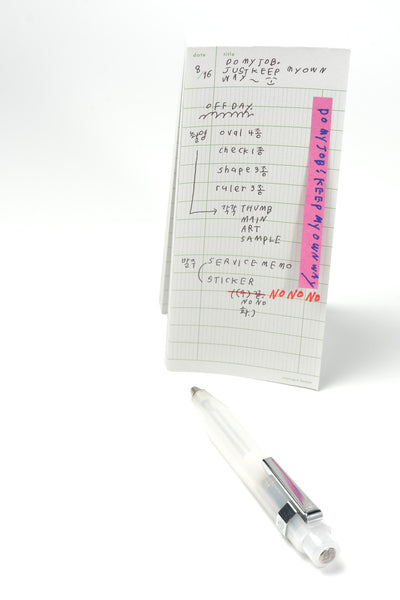 date title
8/16 DO MY JOB.
JUST KEEP MY OWN
WAY ~
OFF DAY
촬영 oval 4종
check 1종
shape 3종
ruler 3종
각각 THUMB
MAIN
ART
SAMPLE
SERVICE MEMO
STICKER
NO NO NO
NO NO
DO MY JOB! KEEP MY OWN WAY